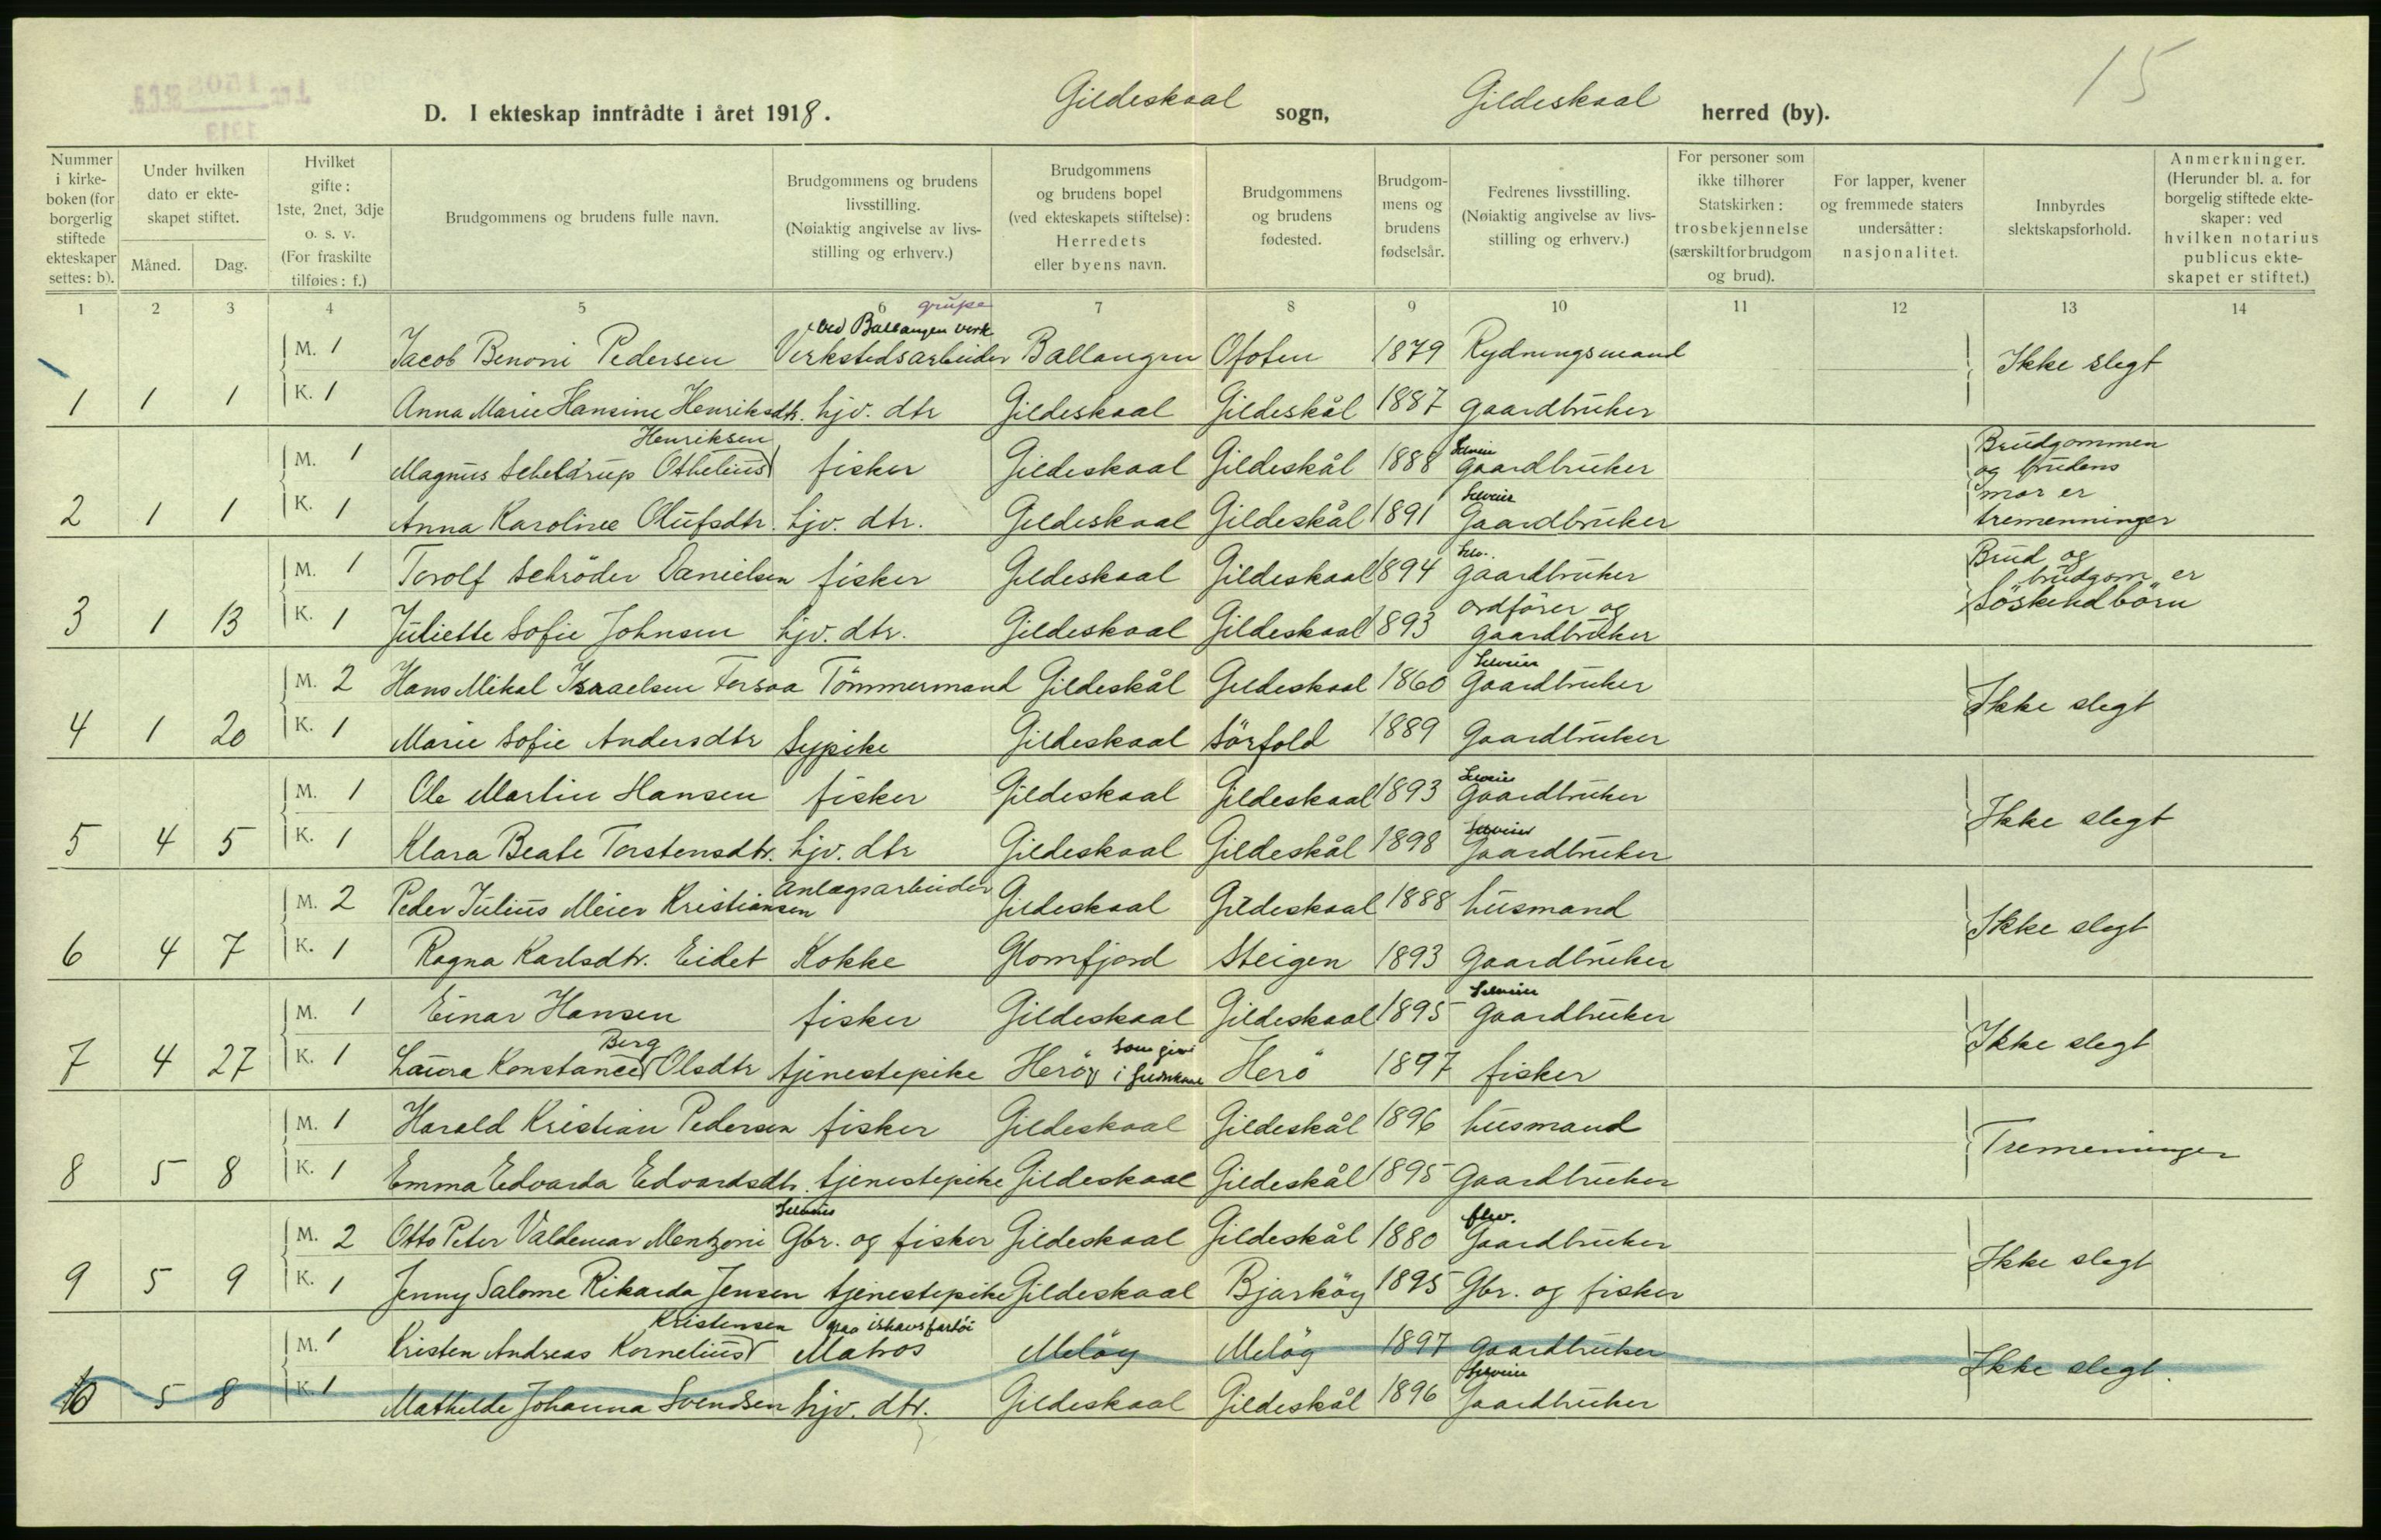 15
D. I ekteskap inntrådte i året 1918. Gildeskaal sogn, Gildeskaal herred (by).
Nummer i kirkeboken (for borgerlig stiftede ekteskaper settes: b).
Under hvilken dato er ekteskapet stiftet.
Måned. Dag.
Hvilket gifte: 1ste, 2net, 3dje o. s. v. (For fraskilte tilføies: f.)
Brudgommens og brudens fulle navn.
Brudgommens og brudens livsstilling. (Nøiaktig angivelse av livsstilling og erhverv.)
Brudgommens og brudens bopel (ved ekteskapets stiftelse): Herredets eller byens navn.
Brudgommens og brudens fødested.
Brudgommens og brudens fødselsår.
Fedrenes livsstilling. (Nøiaktig angivelse av livsstilling og erhverv.)
For personer som ikke tilhører Statskirken: trosbekjennelse (særskilt for brudgom og brud).
For lapper, kvener og fremmede staters undersåtter: nasjonalitet.
Innbyrdes slektskapsforhold.
Anmerkninger. (Herunder bl. a. for borgelig stiftede ekteskaper: ved hvilken notarius publicus ekteskapet er stiftet.)
1 2 3 4 5 6 7 8 9 10 11 12 13 14
grupe
ved Ballangen verk
M. 1 Jacob Benoni Pedersen Verkstedsarbeider Ballangen Ofoten 1879 Rydningsmand Ikke slegt
1 1 1 K. 1 Anna Marie Hansine Henriksdtr. hjv. dtr Gildeskaal Gildeskål 1887 gaardbruker
Henriksen Selveier
M. 1 Magnus Scheldrup Othelius fisker Gildeskaal Gildeskål 1888 gaardbruker Brudgommen og brudens
Selveier
2 1 1 K. 1 Anna Karoline Olufsdtr. hjv. dtr. Gildeskaal Gildeskål 1891 Gaardbruker mor er tremenninger
Selv.
M. 1 Torolf Schröder Danielsen fisker Gildeskaal Gildeskaal 1894 gaardbruker Brud og brudgom er
3 1 13 K. 1 Juliette Sofie Johnsen hjv. dtr. Gildeskaal Gildeskaal 1893 ordförer og gaardbruker Söskendbörn
Selveier
M. 2 Hans Mikal Israelsen Forsaa Tömmermand Gildeskål Gildeskaal 1860 Gaardbruker Ikke slegt
4 1 20 K. 1 Marie Sofie Andersdtr Sypike Gildeskaal Sörfold 1889 Gaardbruker
Selveier
M. 1 Ole Martin Hansen fisker Gildeskaal Gildeskaal 1893 Gaardbruker Ikke slegt
Selveier
5 4 5 K. 1 Klara Beate Torstensdtr. hjv. dtr Gildeskaal Gildeskål 1898 Gaardbruker
M. 2 Peder Julius Meier Kristiansen Anlægsarbeider Gildeskaal Gildeskaal 1888 husmand Ikke slegt
6 4 7 K. 1 Ragna Karlsdtr. Eidet Kokke Glomfjord Steigen 1893 Gaardbruker
Selveier
M. 1 Einar Hansen fisker Gildeskaal Gildeskaal 1895 Gaardbruker Ikke slegt
Berg
7 4 27 K. 1 Laura Konstance Olsdtr tjenestepike Heröy Herö 1897 fisker
M. 1 Harald Kristian Pedersen fisker Gildeskaal Gildeskål 1896 husmand Tremenninger
8 5 8 K. 1 Emma Edvarda Edvardsdtr. tjenestepike Gildeskaal Gildeskål 1895 Gaardbruker
Selveier
M. 2 Otto Peter Valdemar Mentzoni Gbr. og fisker Gildeskaal Gildeskål 1880 Gaardbruker Ikke slegt
9 5 9 K. 1 Jenny Salome Rikarda Jensen tjenestepike Gildeskaal Bjarköy 1895 Gbr. og fisker
Kristensen paa ishavsfartöi
M. 1 Kristen Andreas Kornelius Matros Melöy Melöy 1897 Gaardbruker Ikke slegt.
Selveier
10 5 8 K. 1 Mathilde Johanna Svendsen hjv. dtr. Gildeskaal Gildeskål 1896 Gaardbruker